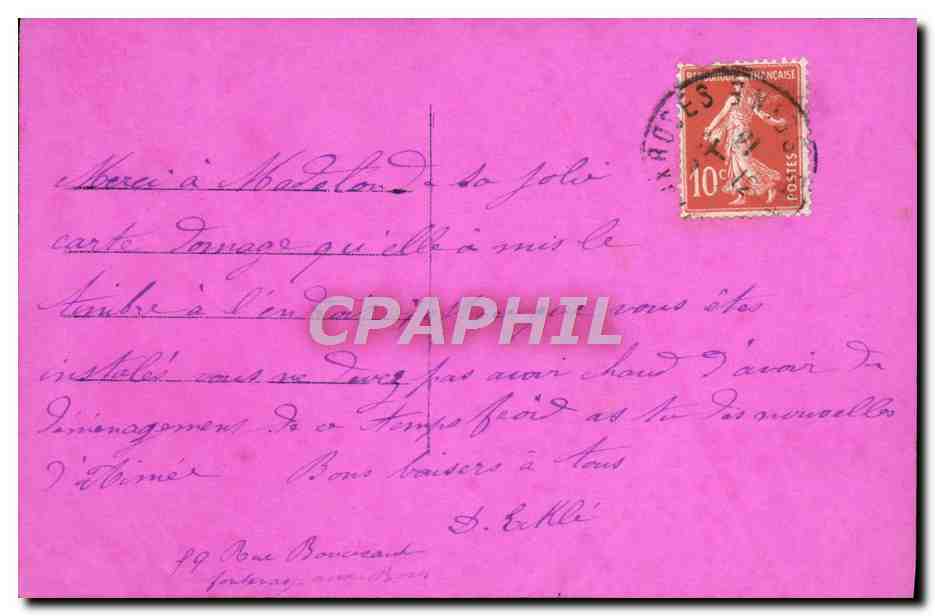 REPUBLIQUE FRANÇAISE
10c
POSTES
ROSES
Merci à Madelon de sa jolie
carte domage qu'elle à mis le
timbre à l'endroit vous êtes
instalés vous ne devez pas avoir chaud d'avoir du
déménagement de ce temps froid as tu des nouvelles
d'Aimée Bons baisers à tous
D. Erklé
59 Rue Boucicaut
fontenay aux Roses
CPAPHIL